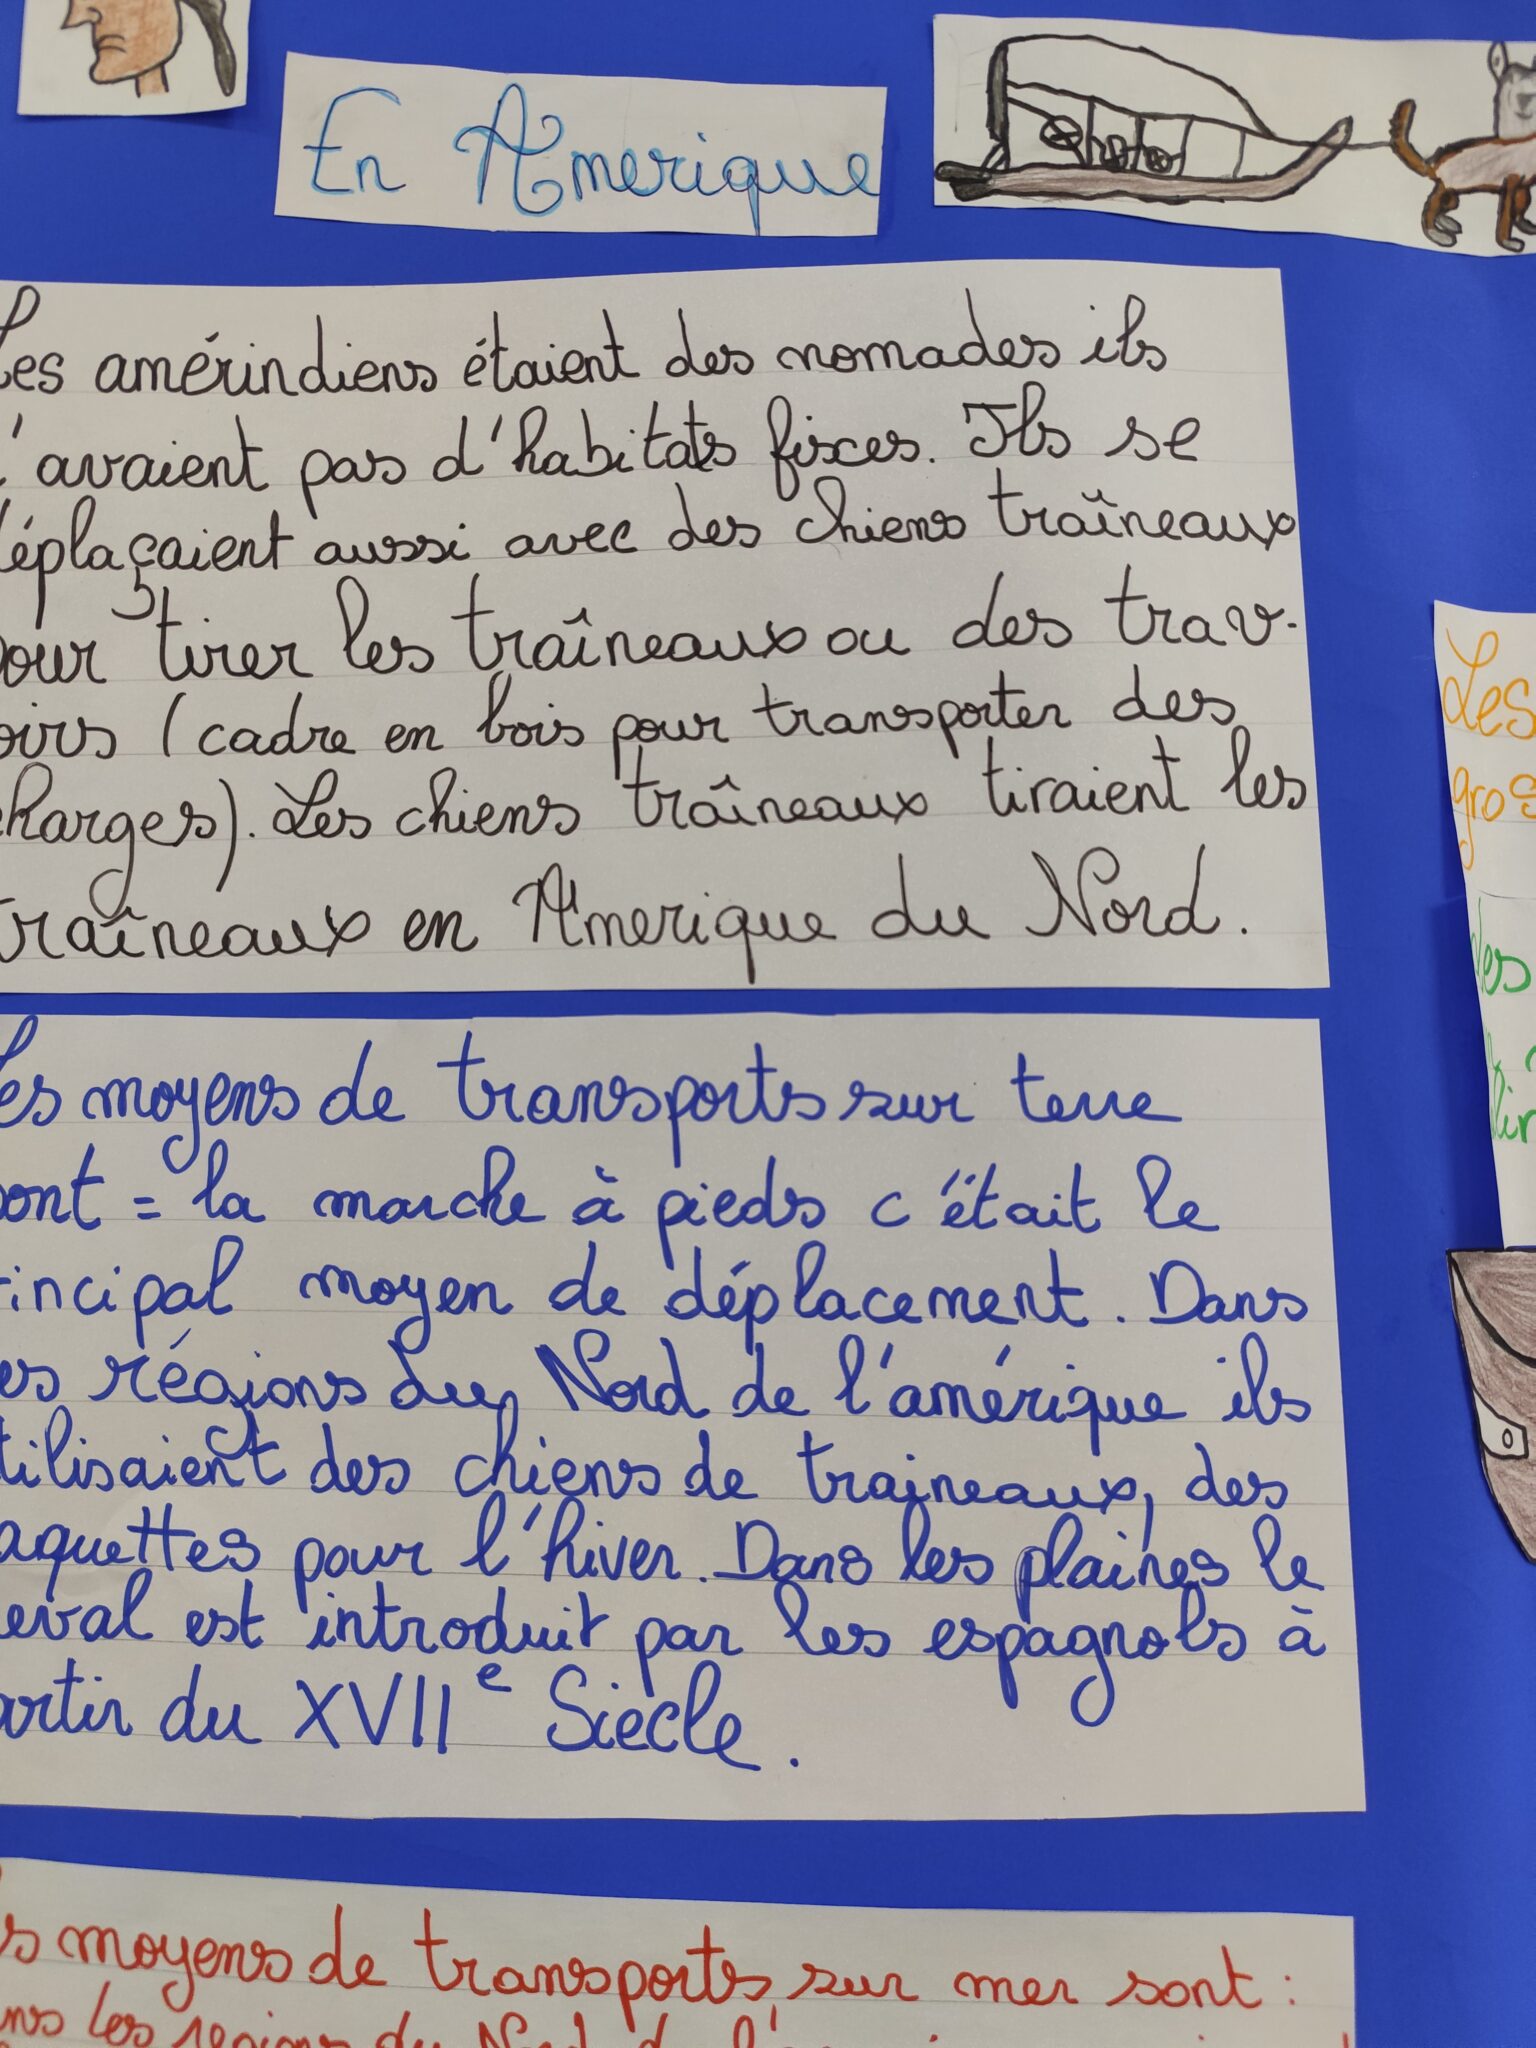 En Amerique
Les amérindiens étaient des nomades ils
n'avaient pas d'habitats fixes. Ils se
déplaçaient aussi avec des chiens traîneaux
pour tirer les traîneaux ou des trav-
oirs (cadre en bois pour transporter des
charges). Les chiens traîneaux tiraient les
traîneaux en Amerique du Nord.
Les moyens de transports sur terre
sont = la marche à pieds c'était le
rincipal moyen de déplacement. Dans
es régions du Nord de l'amérique ils
tilisaient des chiens de traineaux, des
aquettes pour l'hiver. Dans les plaines le
eval est introduit par les espagnols à
artir du XVIIe Siecle.
s moyens de transports sur mer sont :
ns les regions du Nord de l'
Les
gros
les